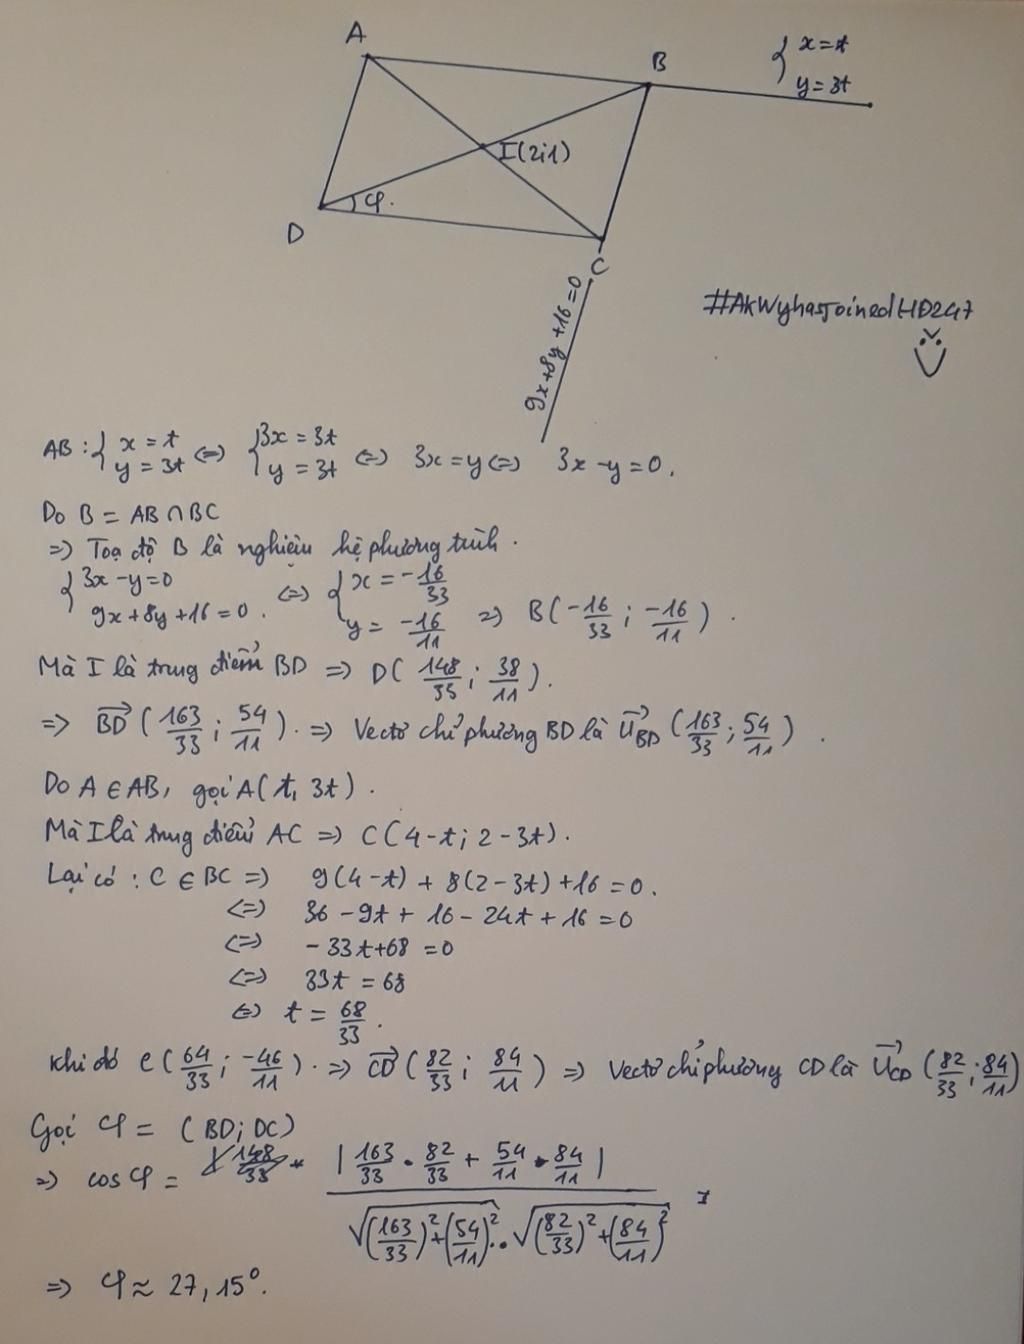 A
B
{ x = t
y = 3t
I(2;1)
φ.
D
C
9x+8y+16=0
#AkWyhasJoinedHD247
AB: { x = t y = 3t <=> { 3x = 3t y = 3t <=> 3x = y <=> 3x - y = 0.
Do B = AB ∩ BC
=> Toạ độ B là nghiệm hệ phương trình.
{ 3x - y = 0 9x + 8y + 16 = 0. <=> { x = -16/33 y = -16/11 => B(-16/33 ; -16/11).
Mà I là trung điểm BD => D(148/33 ; 38/11).
=> BD→ (163/33 ; 54/11). => Vectơ chỉ phương BD là u→BD (163/33 ; 54/11).
Do A ∈ AB, gọi A(t, 3t).
Mà I là trung điểm AC => C(4-t; 2-3t).
Lại có : C ∈ BC => 9(4-t) + 8(2-3t) + 16 = 0.
<=> 36 - 9t + 16 - 24t + 16 = 0
<=> - 33t + 68 = 0
<=> 33t = 68
<=> t = 68/33.
Khi đó C(64/33 ; -46/11). => CD→ (82/33 ; 84/11) => Vectơ chỉ phương CD là u→CD (82/33 ; 84/11)
Gọi φ = (BD; DC)
=> cos φ = |163/33 . 82/33 + 54/11 . 84/11| / √((163/33)² + (54/11)²) . √((82/33)² + (84/11)²)
=> φ ≈ 27,15°.